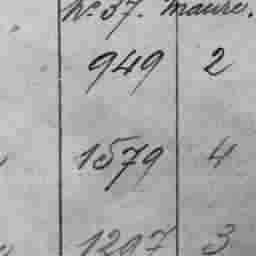 No. 37. maure.
949 2
1579 4
1297 3